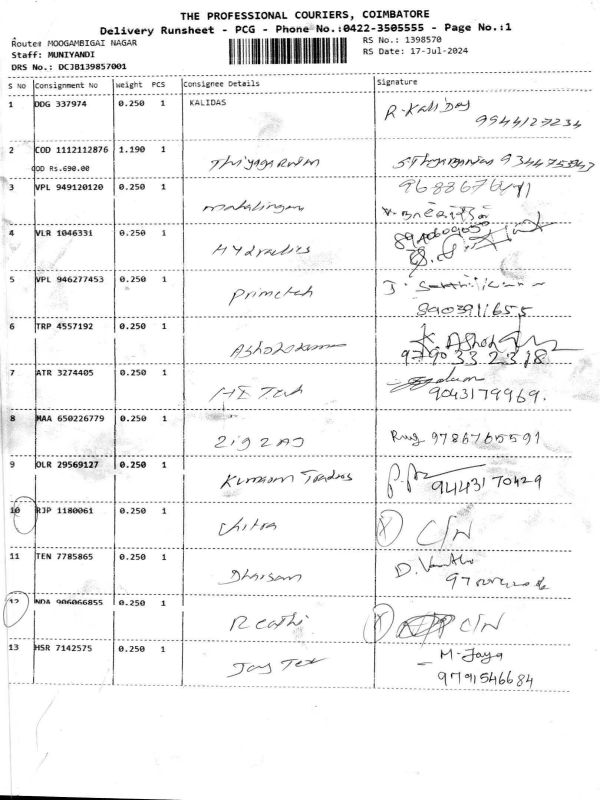 THE PROFESSIONAL COURIERS, COIMBATORE
Delivery Runsheet - PCG - Phone No.:0422-3505555 - Page No.:1
Route# MOOGAMBIGAI NAGAR
RS No.: 1398570
Staff: MUNIYANDI
RS Date: 17-Jul-2024
DRS No.: DCJB139857001
S No Consignment No Weight PCS Consignee Details Signature
1 DDG 337974 0.250 1 KALIDAS R-Kalidas
9944127234
2 COD 1112112876 1.190 1
COD Rs.690.00 Thiyagarajan
3 VPL 949120120 0.250 1 9688676441
Mahalingam
4 VLR 1046331 0.250 1
Hydraulics
5 VPL 946277453 0.250 1
Primetech
8903911655
6 TRP 4557192 0.250 1 K. Ashok
Ashokkumar 9790332318
7 ATR 3274405 0.250 1
HI Tech 9043179969.
8 MAA 650226779 0.250 1
2igzag 9786765591
9 OLR 29569127 0.250 1
Kumaran Traders 9443170429
10 RJP 1180061 0.250 1
Chitra X C/N
11 TEN 7785865 0.250 1
D.
12 NDA 906066855 0.250 1
Reathi X C/N
13 HSR 7142575 0.250 1 M-Jaya
Jay Tex 9791546684